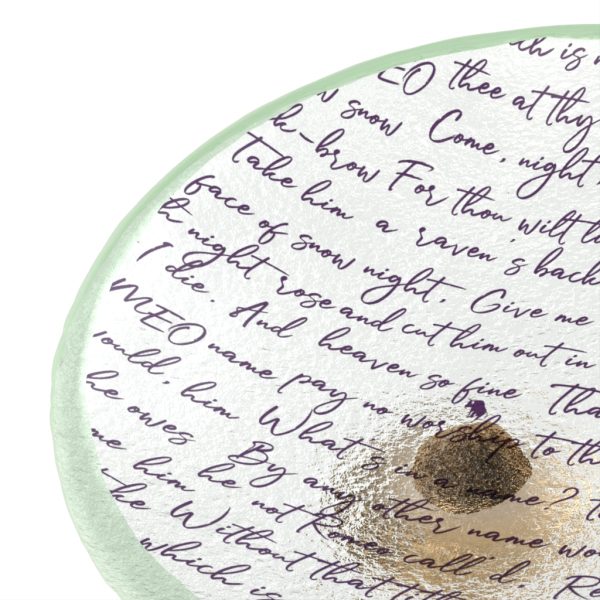 is
EO thee at thy
snow Come, night
k-brow For thou wilt
Take him a raven's back
face of snow night, Give me
night rose and cut him out in
I die. And heaven so fine Tha
MEO name pay no worship to th
would, him What's in a name?
he owes By any other name wo
me him he not Romeo call'd, Re
the Without that tit
which is